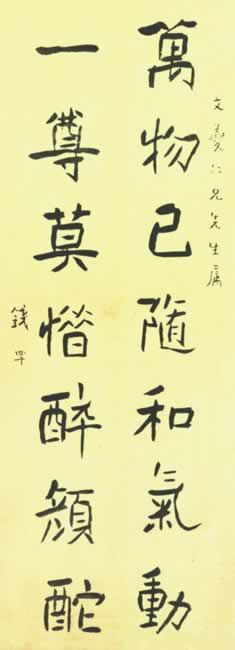 文仁兄先生属
萬物已隨和氣動
一尊莫惜醉顔酡
錢罕